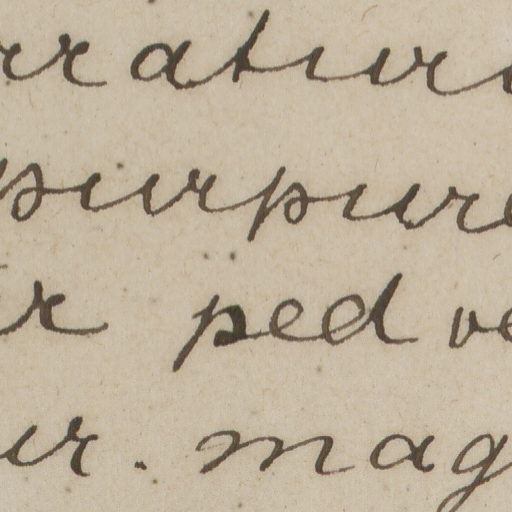 rratur
purpure
r ped ve
ur. mag